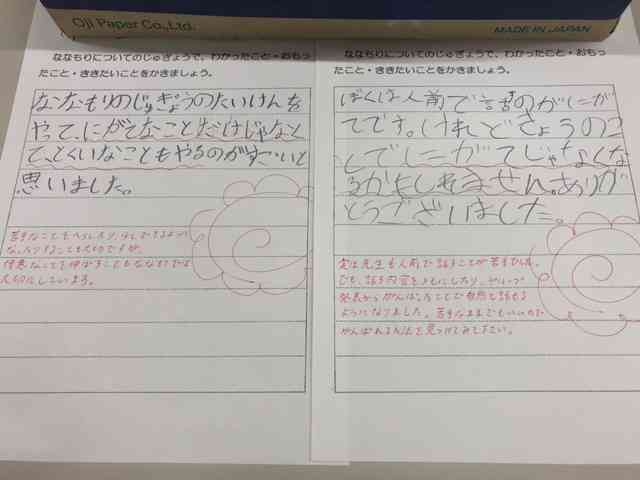 Oji Paper Co.,Ltd.
MADE IN JAPAN
ななもりについてのじゅぎょうで、わかったこと・おもっ
たこと・ききたいことをかきましょう。
ななもりのじゅぎょうのたいけんを
やって、にがてなことだけじゃなく
て、とくいなこともやるのがすごいと
思いました。
苦手なことをへらしたり、少しできるように
なったりすることも大切ですが、
得意なことを伸ばすこともななもりでは
大切にしています。
ななもりについてのじゅぎょうで、わかったこと・おもっ
たこと・ききたいことをかきましょう。
ぼくは人前で話すのがにが
てです。けれどきょうのこ
とでにがてじゃなくな
るかもしれません。ありが
とうございました。
実は先生も人前で話すことが苦手でした。
でも、話す内容をメモにしたり、グループ
発表からがんばったことで自然と話せる
ようになりました。苦手なままでもいいので
がんばれる方法を見つけてみて下さい。